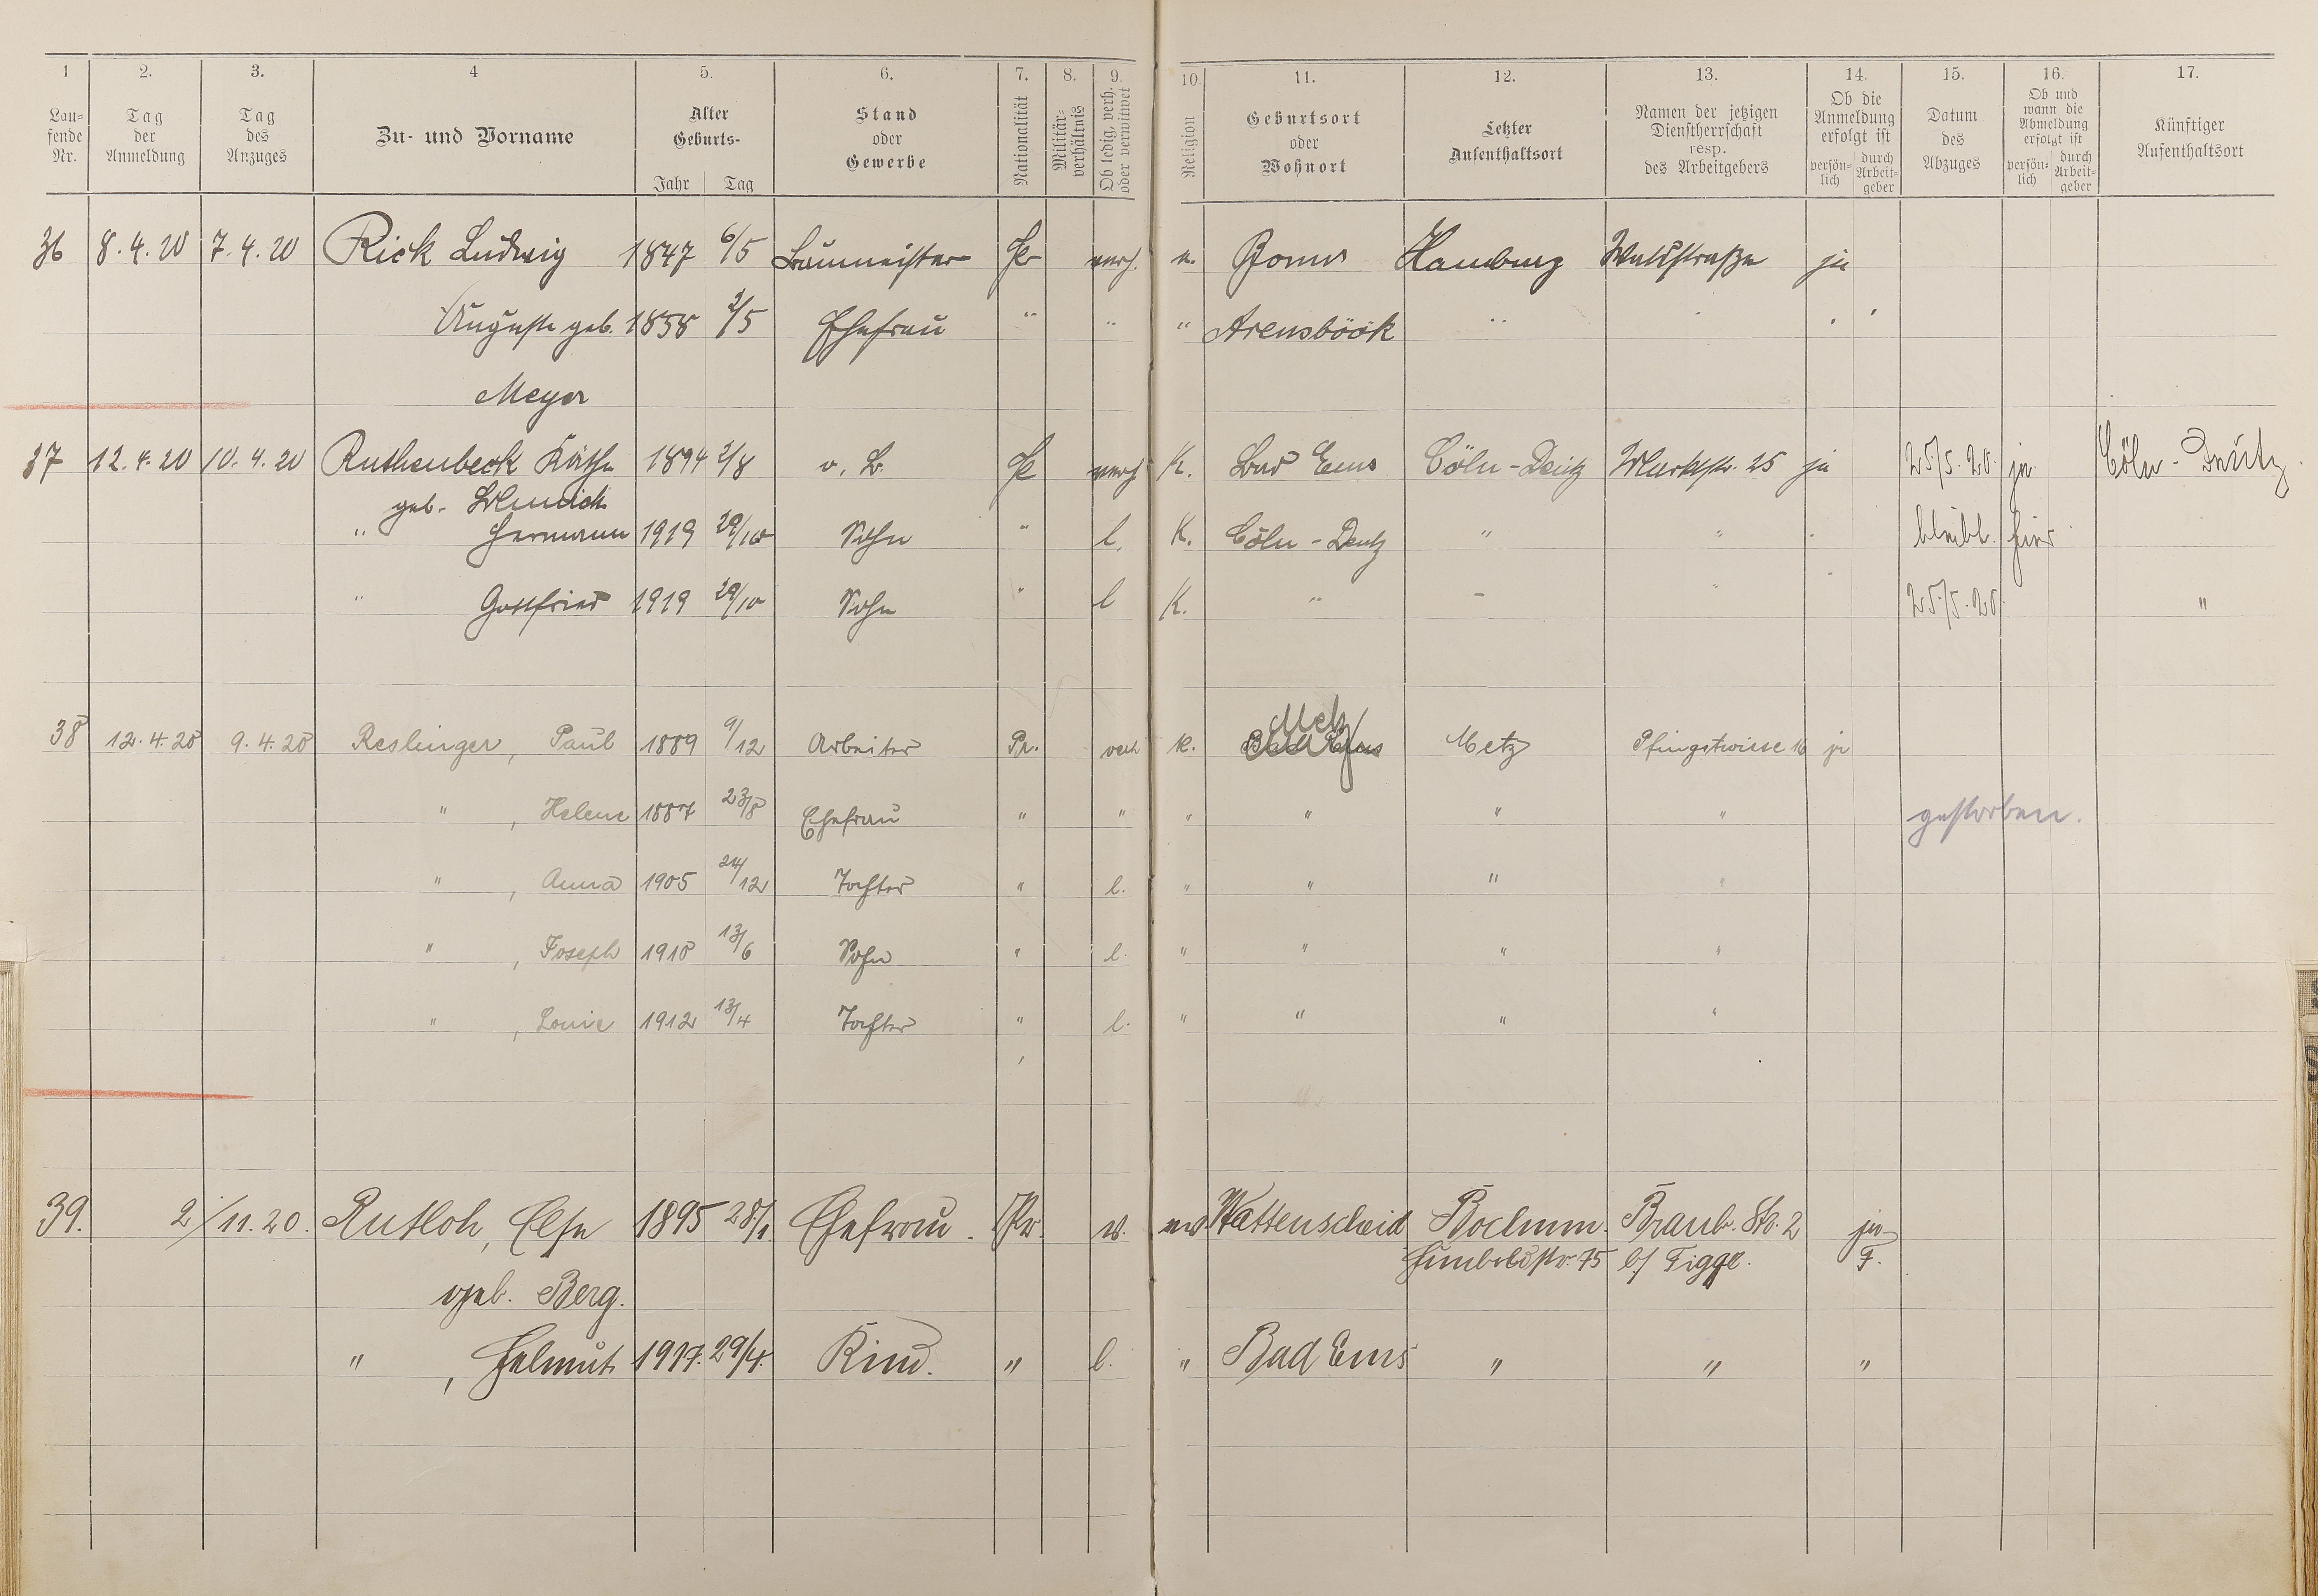 1 2. 3. 4 5. 6. 7. 8. 9. 10. 11. 12. 13. 14. 15. 16. 17.
Lau-
fende
Nr.
Tag
der
Anmeldung
Tag
des
Anzuges
Zu- und Vorname
Alter
Geburts-
Jahr Tag
Stand
oder
Gewerbe
Nationalität
Militär-
verhältnis
Ob ledig, verh.
oder verwitwet
Religion
Geburtsort
oder
Wohnort
Letzter
Aufenthaltsort
Namen der jetzigen
Dienstherrschaft
resp.
des Arbeitgebers
Ob die
Anmeldung
erfolgt ist
persön-
lich
durch
Arbeit-
geber
Datum
des
Abzuges
Ob und
wann die
Abmeldung
erfolgt ist
persön-
lich
durch
Arbeit-
geber
Künftiger
Aufenthaltsort
36 8.4.20 7.4.20 Rick Ludwig 1847 6/5 Baumeister Pr verh. Hamburg Waldstraße ja
Auguste geb. 1858 2/5 Ehefrau " " " Arensböök "
Meyer
37 12.4.20 10.4.20 Ruthenbeck Käthe 1894 2/8 o. B. Pr verh K. Bad Ems Cöln-Deutz Marktstr. 25 ja 25/5.20. ja Cöln-Deutz.
geb.
" Hermann 1919 29/10 Sohn " l. K. Cöln-Deutz " " bleibt hier
" Gottfried 1919 29/10 Sohn " l K. " " " 25/5.20. "
38 12.4.20 9.4.20 Reslinger, Paul 1889 9/12 Arbeiter Pr. verh K. Metz Metz Pfingstwiese 16 ja
" , Helene 1887 23/8 Ehefrau " " " " " " gestorben.
" , Anna 1905 24/12 Tochter " l. " " " "
" , Joseph 1910 13/6 Sohn " l. " " " "
" , Louie 1912 13/4 Tochter " l. " " " "
39. 2/11.20. Rutloh, Else 1895 28/1. Ehefrau. Pr. v. ev. Wattenscheid Bochum. Braub. Str. 2 ja
Humboldstr. 75 b/ Figge. F.
geb. Berg.
" , Helmut 1917. 29/4. Kind. " l. " Bad Ems " " "